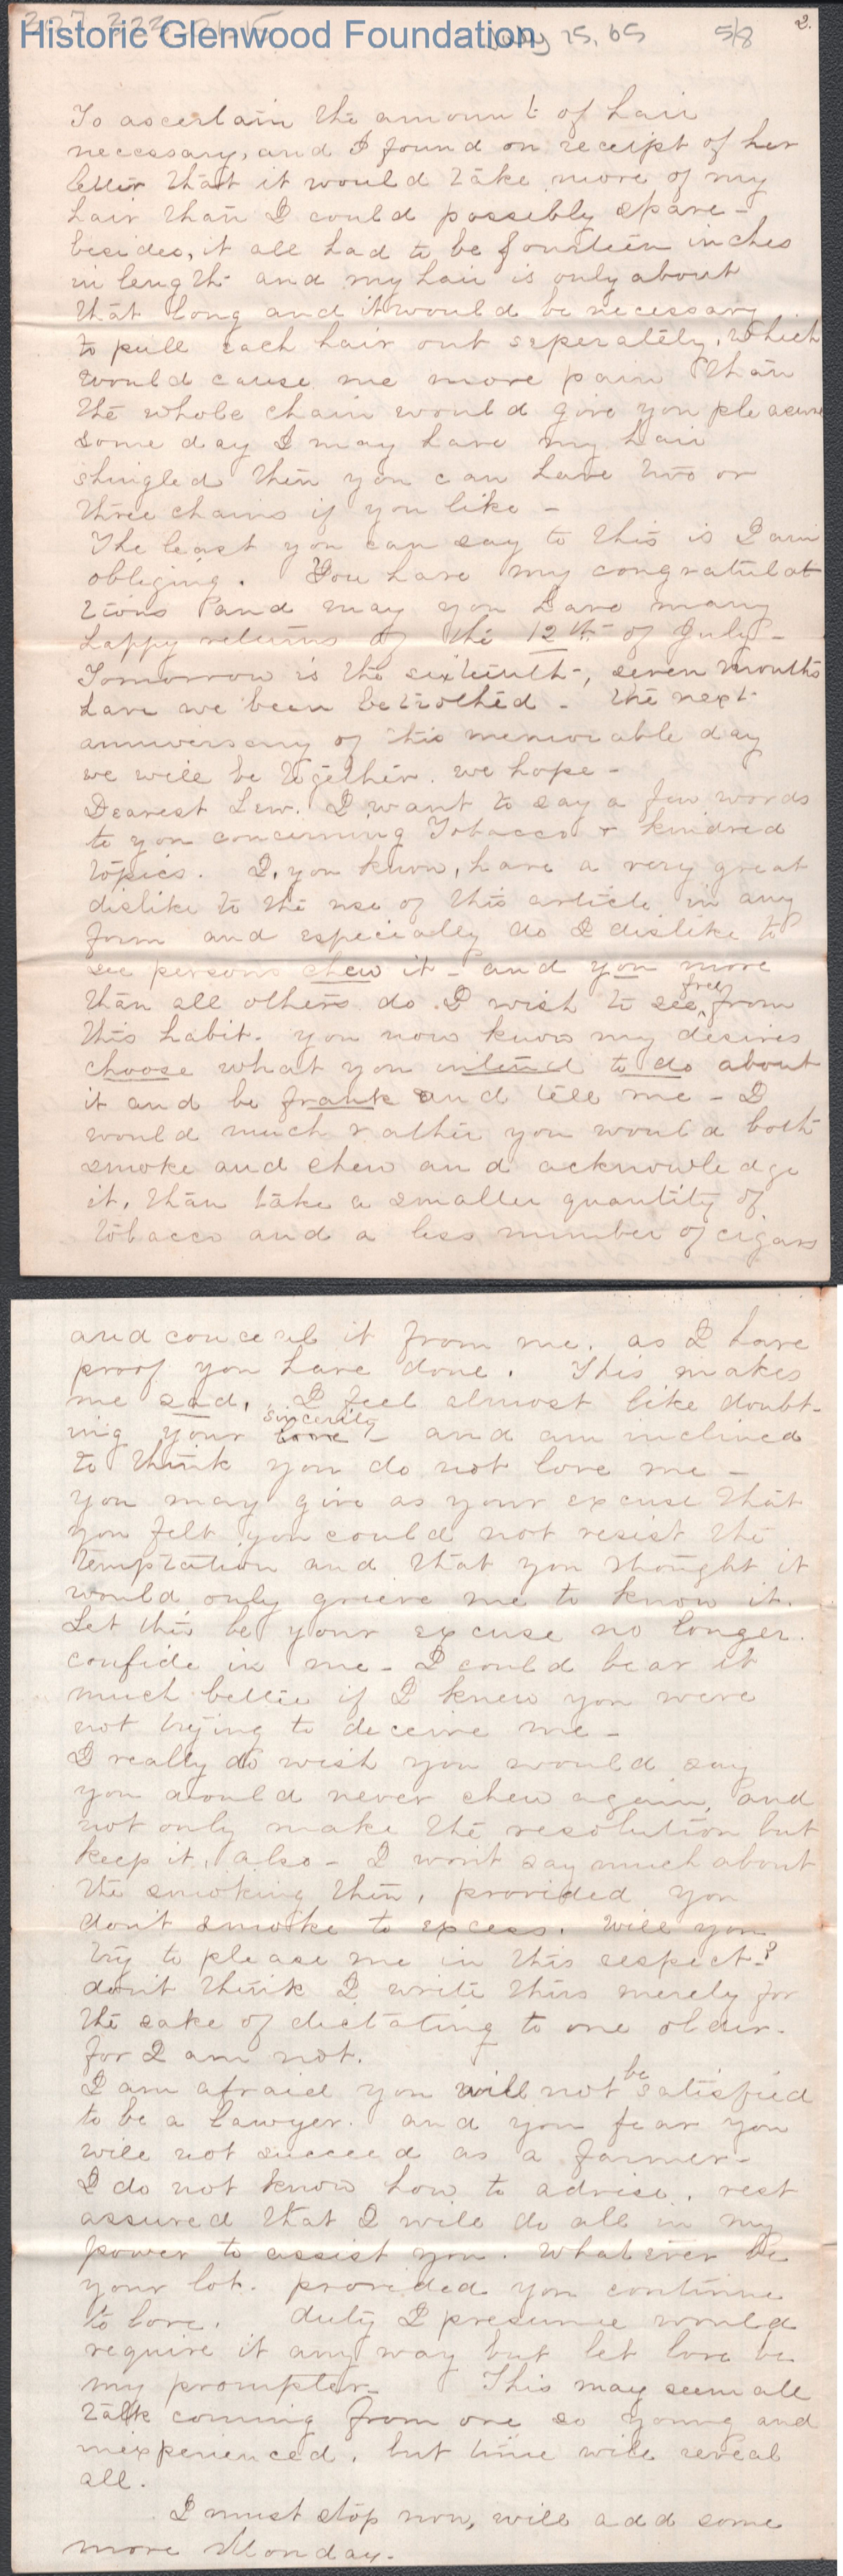 Historic Glenwood Foundation
July 15, 65 5/8 2.
To ascertain the amount of hair
necessary, and I found on receipt of her
letter that it would take more of my
hair than I could possibly spare -
besides, it all had to be fourteen inches
in length and my hair is only about
that long and it would be necessary
to pull each hair out seperately, which
would cause me more pain than
the whole chain would give you pleasure
some day I may have my hair
shingled then you can have two or
three chains if you like -
The least you can say to this is I am
obliging. You have my congratulat
tions and may you have many
happy returns of the 12th of July -
Tomorrow is the sixteenth -, seven months
have we been betrothed - the next
anniversary of this memorable day
we will be together. we hope -
Dearest Lew. I want to say a few words
to you concerning Tobacco & kindred
topics. I, you know, have a very great
dislike to the use of this article in any
form and especially do I dislike to
see persons chew it - and you more
than all others do I wish to see free from
this habit. you now know my desires
choose what you intend to do about
it and be frank and tell me - I
would much rather you would both
smoke and chew and acknowledge
it, than take a smaller quantity of
tobacco and a less number of cigars
and conceal it from me, as I have
proof you have done. This makes
me sad, I feel almost like doubt-
ing your love sincerity - and am inclined
to think you do not love me -
you may give as your excuse that
you felt you could not resist the
temptation and that you thought it
would only grieve me to know it.
Let this be your excuse no longer.
confide in me - I could bear it
much better if I knew you were
not trying to deceive me -
I really do wish you would say
you would never chew again, and
not only make the resolution but
keep it, also - I won't say much about
the smoking then, provided you
don't smoke to excess. Will you
try to please me in this respect -?
don't think I write this merely for
the sake of dictating to one older -
for I am not.
I am afraid you will not be satisfied
to be a Lawyer. and you fear you
will not succeed as a farmer -
I do not know how to advise. rest
assured that I will do all in my
power to assist you. Whatever be
your lot. provided you continue
to love. duty I presume would
require it any way but let love be
my prompter - This may seem all
talk coming from one so young and
inexperienced, but time will reveal
all.
I must stop now, will add some
more Monday -